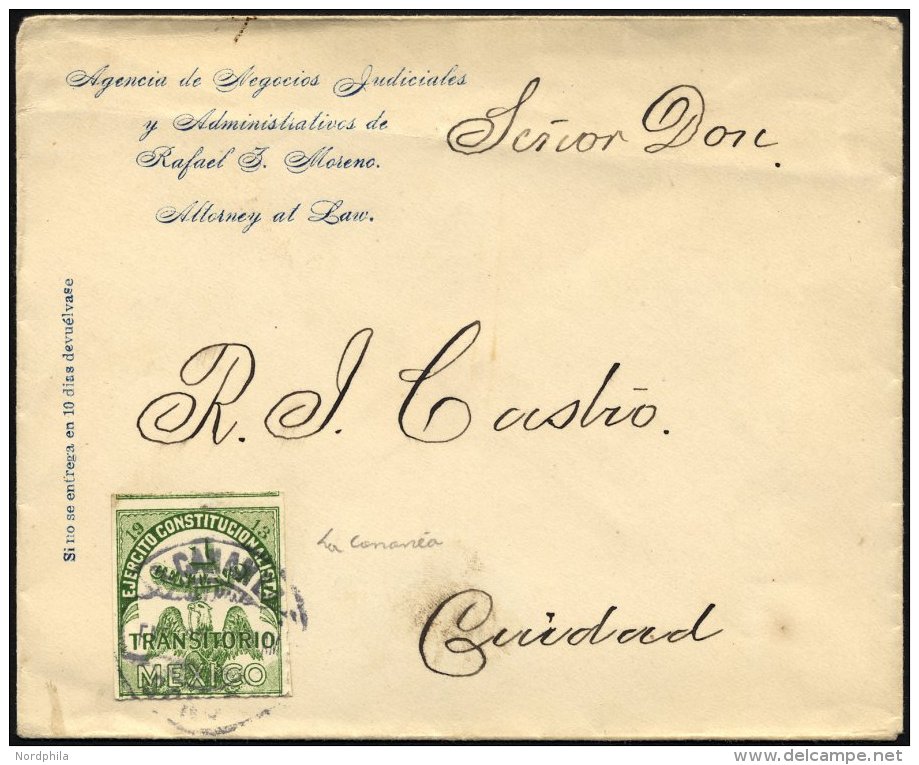 Agencia de Negocios Judiciales
y Administrativos de
Rafael J. Moreno.
Attorney at Law.
Señor Don.
Si no se entrega en 10 dias devuélvase
R. J. Castro.
19 13
EJERCITO CONSTITUCIONALISTA
1
CANANEA
TRANSITORIO
MEXICO
La Cananéa
Ciudad
Nordphila
delcampe.net